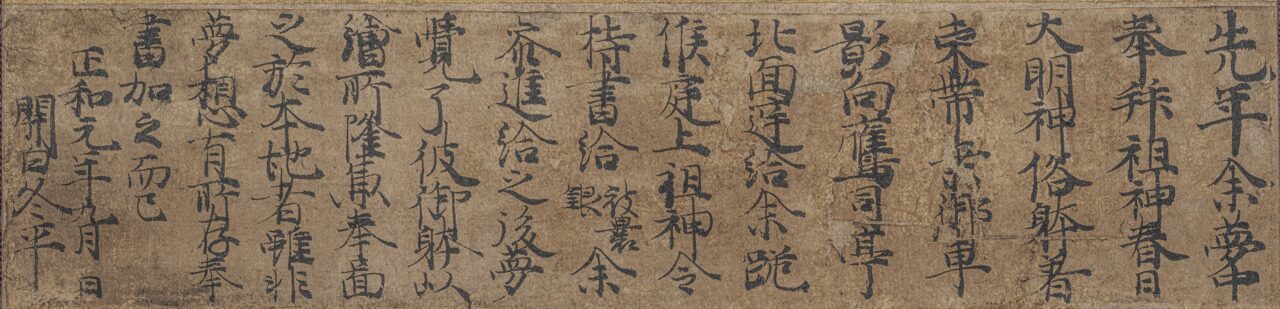 先年余夢中
奉拜祖神春日
大明神俗躰着
束帯乗御車
影向鷹司亭
北面 給余跪
候庭上祖神令
持書給被裹銀余
參進給之後夢
覺了彼御躰以
繪所隆兼奉圖
之於本地者雖非
夢想有所存奉
書加之而已
正和元年九月 日
關白冬平